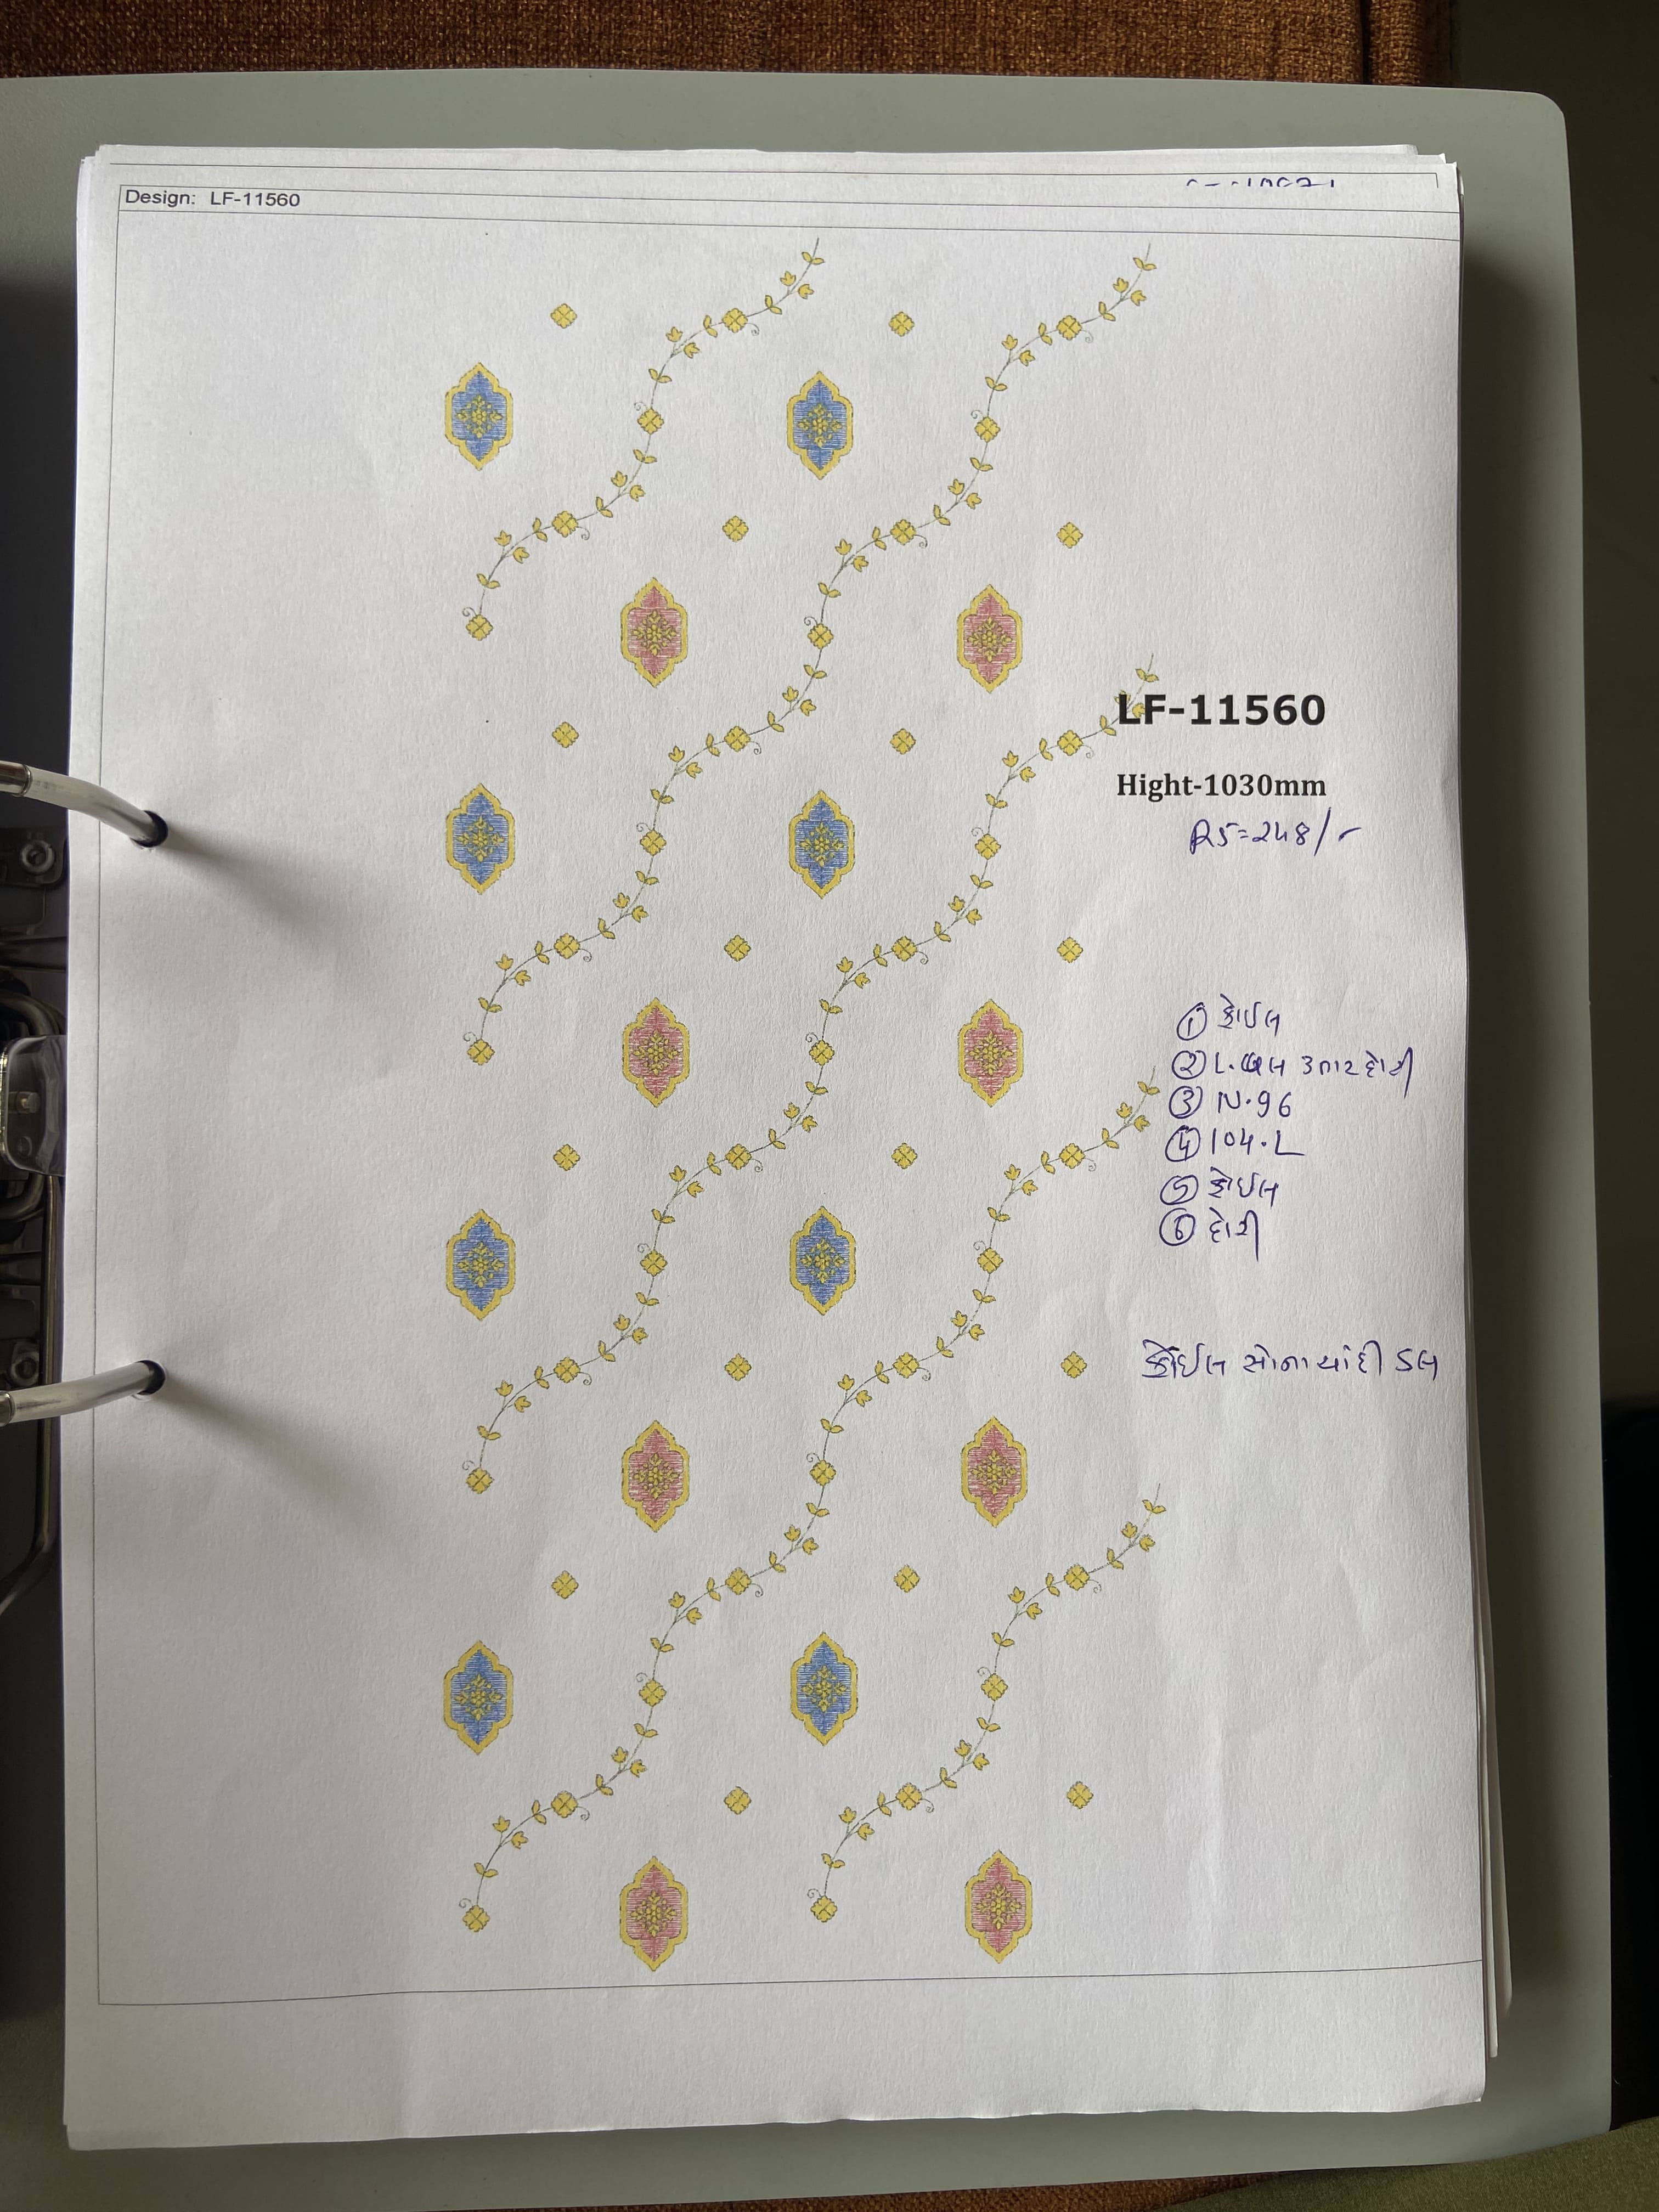 Design: LF-11560
LF-11560
Hight-1030mm
RS=248/-
① કોઈલ
② L. 3તાર દોરી
③ N.96
④ 104.L
⑤ કોઈલ
⑥ દોરી
કોઈલ સોના ચાંદી ડલ